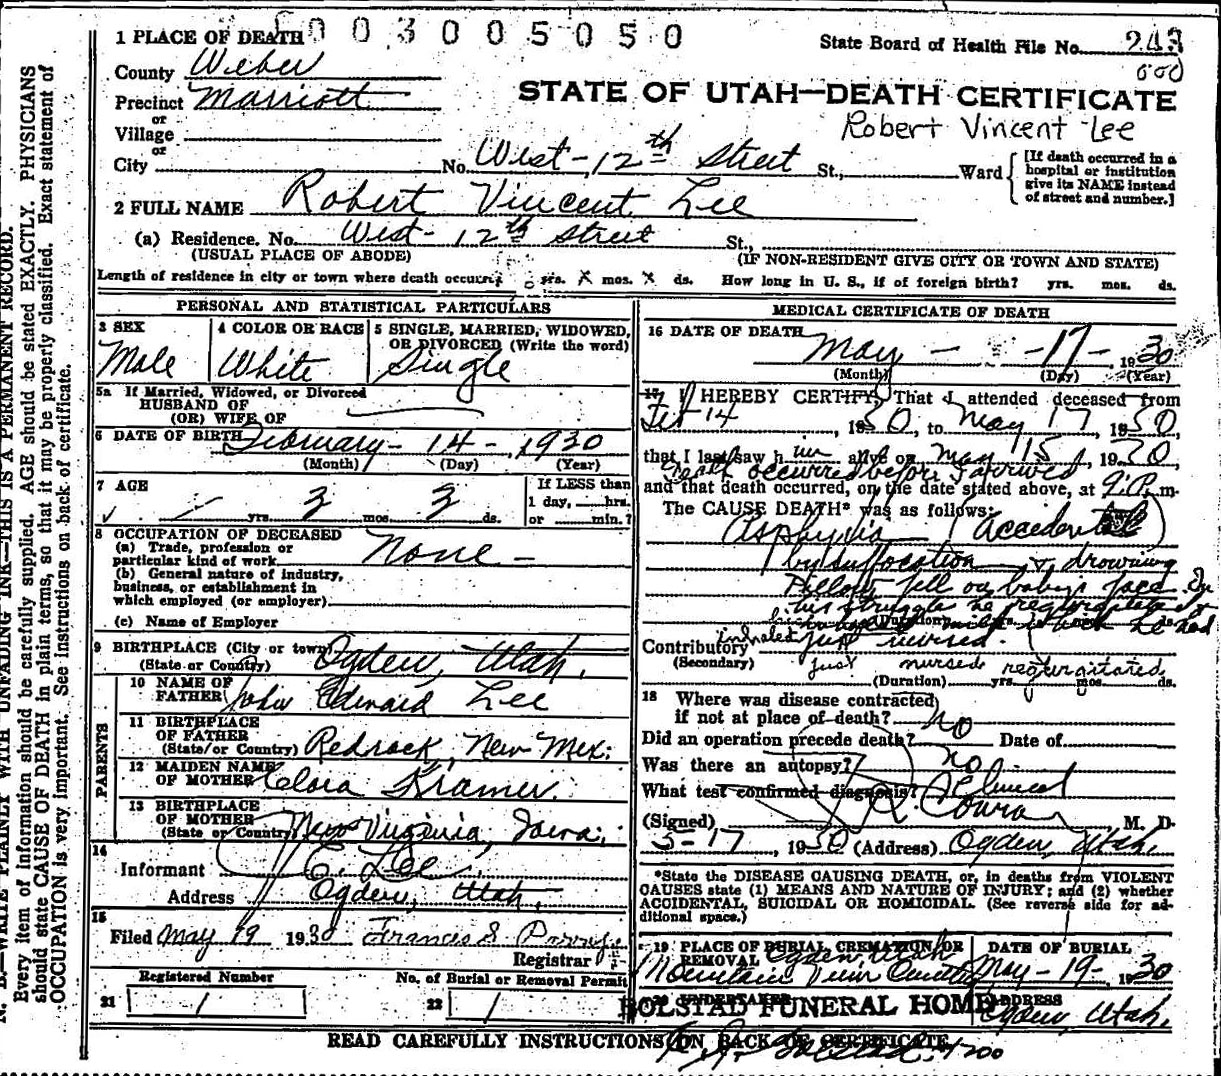 003005050
1 PLACE OF DEATH
State Board of Health File No. 243
County Weber
Precinct Marriott
STATE OF UTAH—DEATH CERTIFICATE
or
Village
Robert Vincent Lee
or
City No. West-12th Street St., Ward
[If death occurred in a hospital or institution give its NAME instead of street and number.]
2 FULL NAME Robert Vincent Lee
(a) Residence. No. West-12th Street St.,
(USUAL PLACE OF ABODE) (IF NON-RESIDENT GIVE CITY OR TOWN AND STATE)
Length of residence in city or town where death occurred yrs. x mos. x ds. How long in U. S., if of foreign birth? yrs. mos. ds.
PERSONAL AND STATISTICAL PARTICULARS
3 SEX Male
4 COLOR OR RACE White
5 SINGLE, MARRIED, WIDOWED, OR DIVORCED (Write the word) Single
5a If Married, Widowed, or Divorced
HUSBAND OF
(OR) WIFE OF
6 DATE OF BIRTH February - 14 -, 1930
(Month) (Day) (Year)
7 AGE
- yrs. 3 mos. 3 ds.
If LESS than 1 day, hrs. or min.?
8 OCCUPATION OF DECEASED
(a) Trade, profession or particular kind of work None -
(b) General nature of industry, business, or establishment in which employed (or employer)
(c) Name of Employer
9 BIRTHPLACE (City or town) Ogden, Utah.
(State or Country)
PARENTS
10 NAME OF FATHER John Edward Lee
11 BIRTHPLACE OF FATHER (State or Country) Redrock, New Mex.
12 MAIDEN NAME OF MOTHER Clora Kramer.
13 BIRTHPLACE OF MOTHER (State or Country) New Virginia, Iowa.
14
Informant E. Lee
Address Ogden, Utah.
15
Filed May 19 1930 Francis S
Registrar
Registered Number No. of Burial or Removal Permit
21 1 22 1
MEDICAL CERTIFICATE OF DEATH
16 DATE OF DEATH May - 17 - 1930
(Month) (Day) (Year)
17 I HEREBY CERTIFY, That I attended deceased from
Feb 14, 1930, to May 17, 1930,
that I last saw him alive on May 15, 1930,
Death occurred before I arrived
and that death occurred, on the date stated above, at 9 P. m.
The CAUSE DEATH* was as follows:
Asphyxia (Accidental)
by suffocation & drowning
Pillow fell on baby's face. In
his struggle he regurgitated
milk which he had
(Duration) yrs. mos. ds.
Contributory inhaled just nursed.
(Secondary) just nursed regurgitated
(Duration) yrs. mos. ds.
18 Where was disease contracted
if not at place of death? no
Did an operation precede death? Date of
Was there an autopsy? no
What test confirmed diagnosis? Clinical
(Signed) M. D.
5-17, 1930 (Address) Ogden, Utah.
*State the DISEASE CAUSING DEATH, or, in deaths from VIOLENT CAUSES state (1) MEANS AND NATURE OF INJURY; and (2) whether ACCIDENTAL, SUICIDAL OR HOMICIDAL. (See reverse side for additional space.)
19 PLACE OF BURIAL, CREMATION, OR REMOVAL Ogden, Utah
Mountain View
DATE OF BURIAL May - 19 - 1930
20 UNDERTAKER ADDRESS
BOLSTAD FUNERAL HOME Ogden, Utah.
READ CAREFULLY INSTRUCTIONS ON BACK OF CERTIFICATE
N. B.—WRITE PLAINLY WITH UNFADING INK—THIS IS A PERMANENT RECORD.
Every item of information should be carefully supplied. AGE should be stated EXACTLY. PHYSICIANS
should state CAUSE OF DEATH in plain terms, so that it may be properly classified. Exact statement of
OCCUPATION is very important. See instructions on back of certificate.